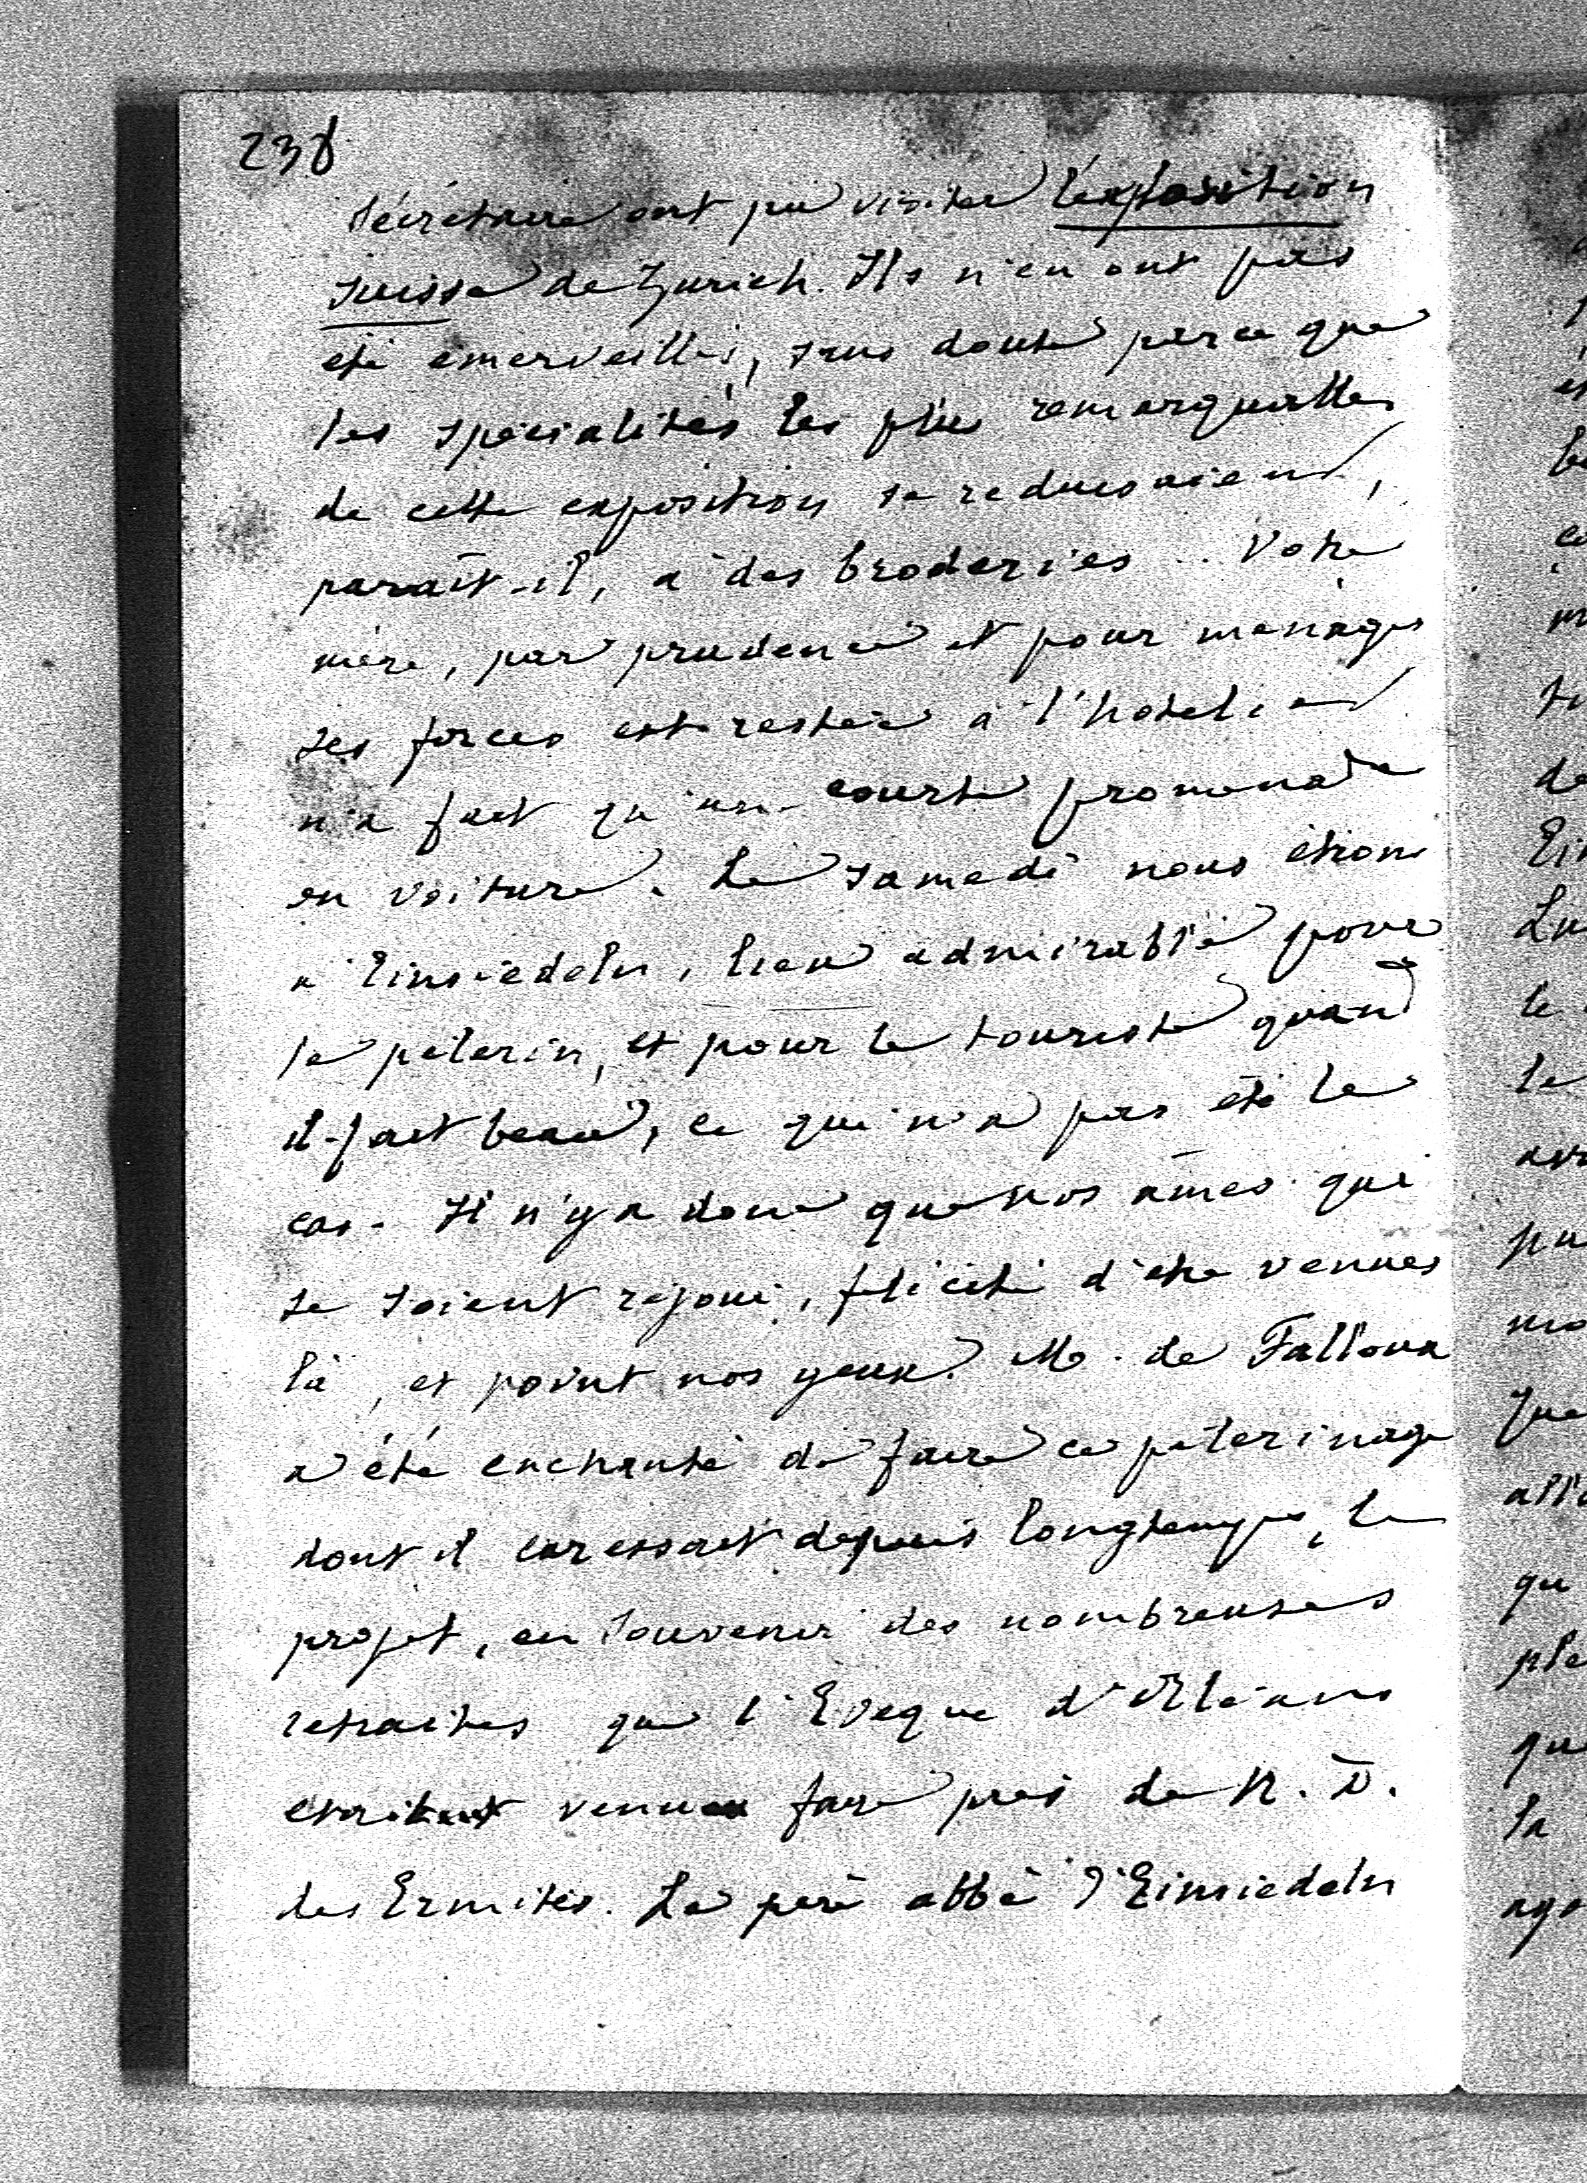 238
Sécrétaire ont pu visiter l'exposition
suisse de Zurich. Ils n'en ont pas
été emerveillés, sans doute parce que
les spécialités les plus remarquables
de cette exposition se reduisaient,
paraît-il, à des broderies.. Votre
mère, par prudence et pour ménager
ses forces est restée à l'hotel et
n'a fait qu'une courte promenade
en voiture. Le Samedi nous étions
a Einsiedeln, lieu admirable pour
le pelerin, et pour le touriste quand
il fait beau, ce qui n'a pas été le
cas. Il n'y a donc que nos âmes qui
se soient rejoui, felicité d'etre venues
là, et point nos yeux. M. de Falloux
a été enchanté de faire ce pelerinage
dont il caressait depuis longtemps, le
projet, en souvenir des nombreuses
retraites que l'Evêque d'Orléans
venu faire près de N. D.
des Ermites. Le père abbé d'Einsiedeln